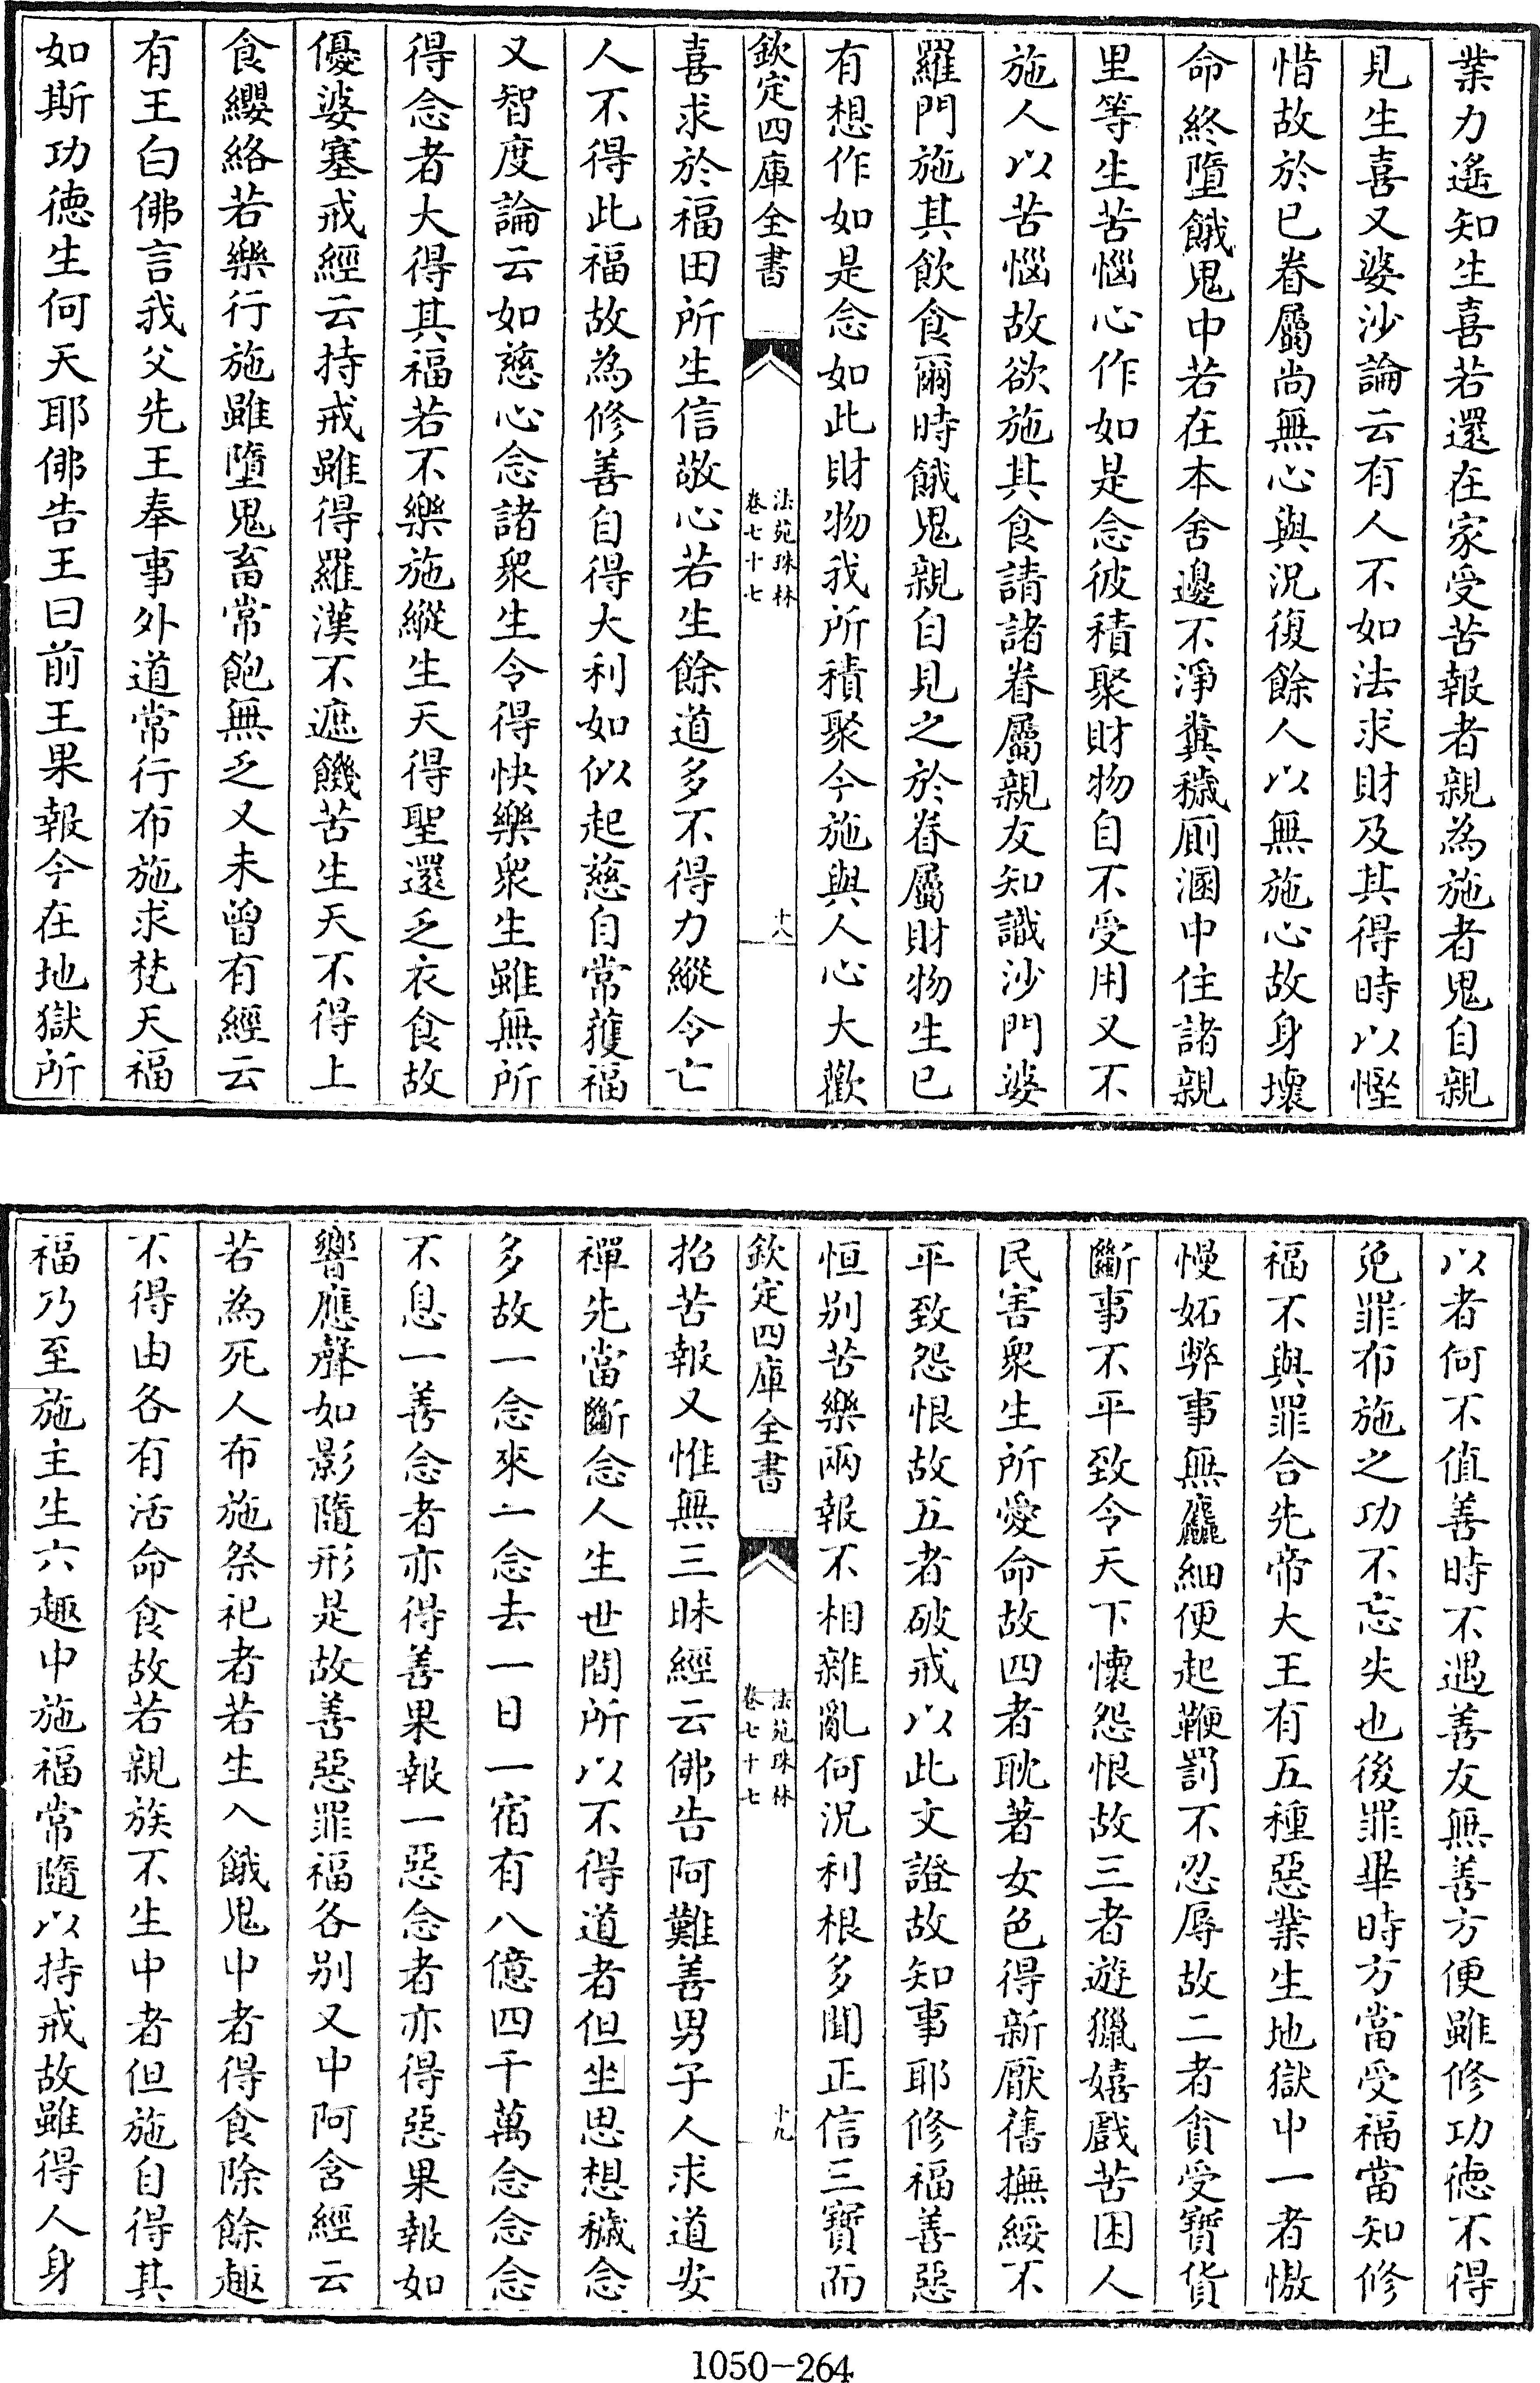 業力遙知生喜若還在家受苦報者親為施者鬼自親
見生喜又婆沙論云有人不如法求財及其得時以慳
惜故於已眷屬尚無心與況復餘人以無施心故身壞
命終墮餓鬼中若在本舍邊不淨糞穢厠溷中住諸親
里等生苦惱心作如是念彼積聚財物自不受用又不
施人以苦惱故欲施其食請諸眷屬親友知識沙門婆
羅門施其飲食爾時餓鬼親自見之於眷屬財物生已
有想作如是念如此財物我所積聚今施與人心大歡
欽定四庫全書
法苑珠林
卷七十七
十八
喜求於福田所生信敬心若生餘道多不得力縱令亡
人不得此福故為修善自得大利如似起慈自常獲福
又智度論云如慈心念諸衆生令得快樂衆生雖無所
得念者大得其福若不樂施縱生天得聖還乏衣食故
優婆塞戒經云持戒雖得羅漢不遮饑苦生天不得上
食纓絡若樂行施雖墮鬼畜常飽無乏又未曾有經云
有王白佛言我父先王奉事外道常行布施求梵天福
如斯功德生何天耶佛告王曰前王果報今在地獄所
以者何不值善時不遇善友無善方便雖修功德不得
免罪布施之功不忘失也後罪畢時方當受福當知修
福不與罪合先帝大王有五種惡業生地獄中一者慠
慢妬弊事無麤細便起鞭罰不忍辱故二者貪受寶貨
斷事不平致令天下懷怨恨故三者遊獵嬉戲苦困人
民害衆生所愛命故四者耽著女色得新厭舊撫綏不
平致怨恨故五者破戒以此文證故知事耶修福善惡
恒别苦樂兩報不相雜亂何況利根多聞正信三寶而
欽定四庫全書
法苑珠林
卷七十七
十九
招苦報又惟無三昧經云佛告阿難善男子人求道安
禪先當斷念人生世間所以不得道者但坐思想穢念
多故一念來一念去一日一宿有八億四千萬念念念
不息一善念者亦得善果報一惡念者亦得惡果報如
響應聲如影隨形是故善惡罪福各别又中阿含經云
若為死人布施祭祀者若生入餓鬼中者得食除餘趣
不得由各有活命食故若親族不生中者但施自得其
福乃至施主生六趣中施福常隨以持戒故雖得人身
1050-264